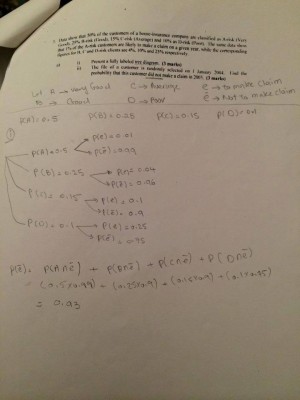 Data show that 50% of the customers of a house-insurance company are classified as A-risk (Very
Good), 25% B-risk (Good), 15% C-risk (Average) and 10% as D-risk (Poor). The same data show
that 1% of the A-risk customers are likely to make a claim on a given year, while the corresponding
figures for B, C and D-risk are 4%, 10% and 25% respectively.
i) Present a fully labeled tree diagram. (5 marks)
ii) The file of a customer is randomly selected on 1 January 2004. Find the
probability that this customer did not make a claim in 2003. (5 marks)
Let A → Very Good C → Average e → to make claim
B → Good D → Poor ē → Not to make claim
P(A) = 0.5 P(B) = 0.25 P(C) = 0.15 P(D) = 0.1
P(A) = 0.5 P(e) = 0.01
P(ē) = 0.99
P(B) = 0.25 P(e) = 0.04
P(ē) = 0.96
P(C) = 0.15 P(e) = 0.1
P(ē) = 0.9
P(D) = 0.1 P(e) = 0.25
P(ē) = 0.75
P(ē) = P(A∩ē) + P(B∩ē) + P(C∩ē) + P(D∩ē)
= 0.93